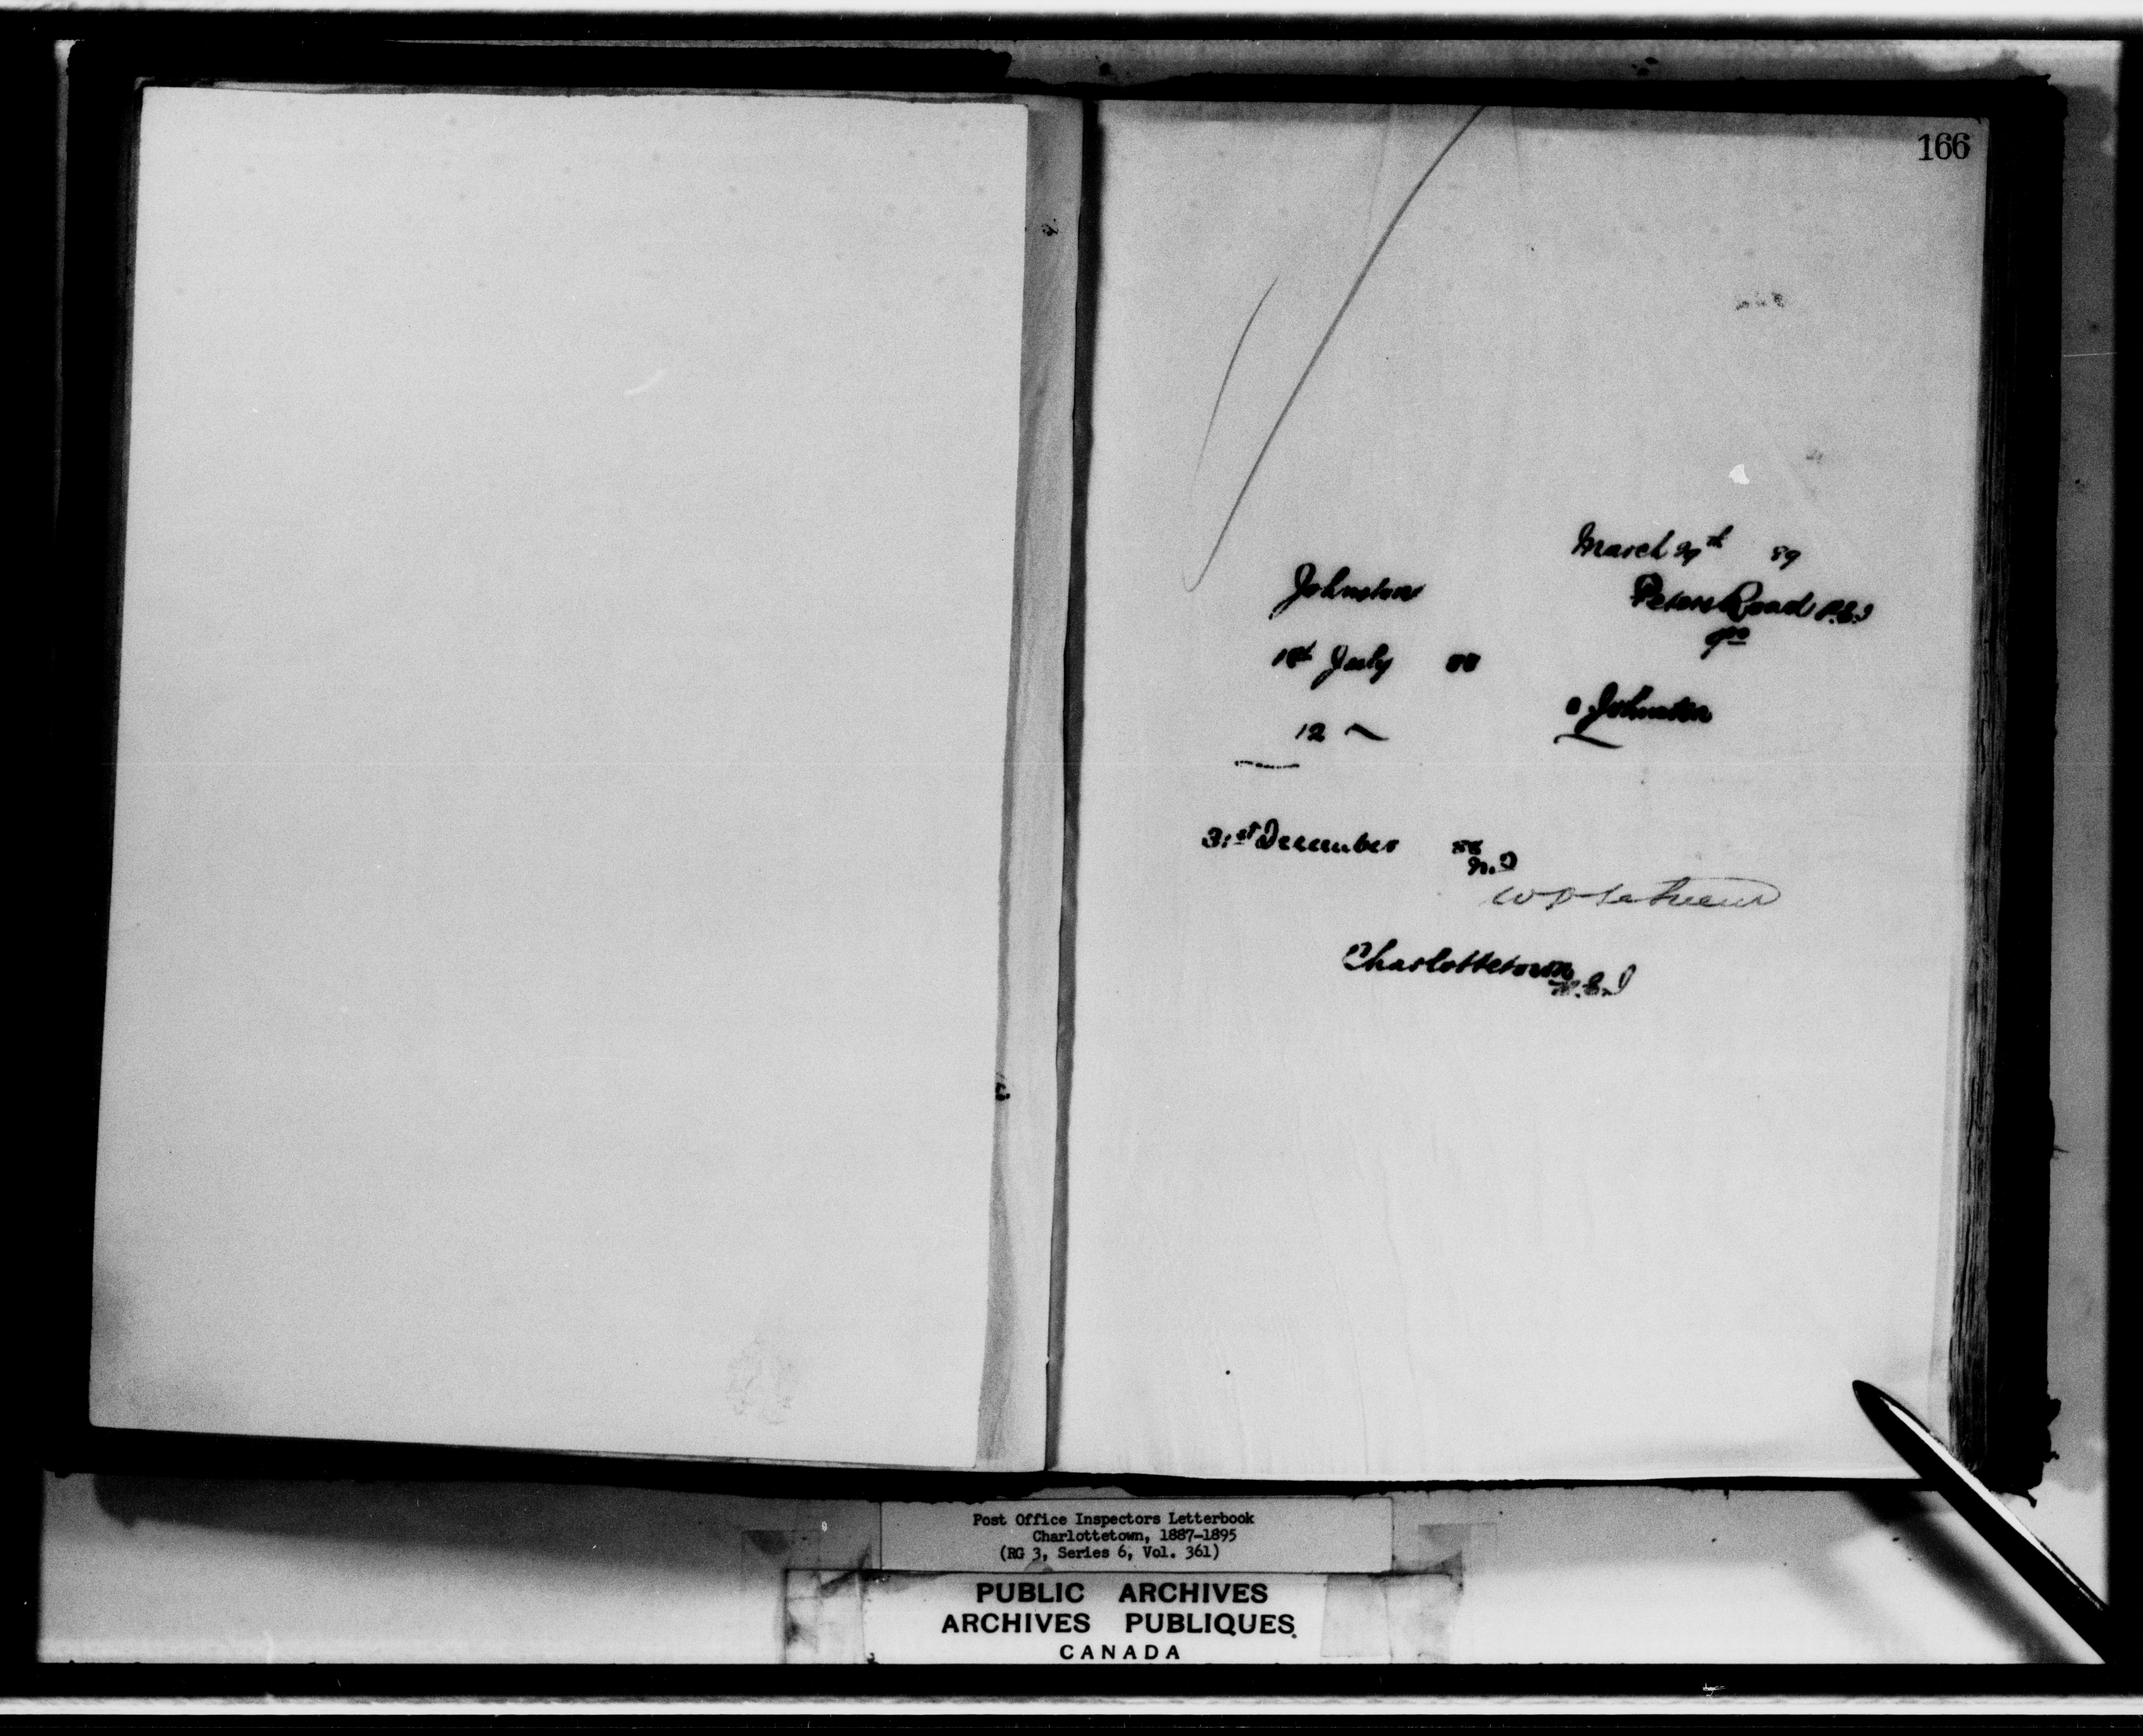 166
March 29th 89
Johnston
Peters Road P.E.I
1st July 88
Johnston
12
31st December 88
Charlottetown
P.E.I
Post Office Inspectors Letterbook
Charlottetown, 1887-1895
(RG 3, Series 6, Vol. 361)
PUBLIC ARCHIVES
ARCHIVES PUBLIQUES
CANADA